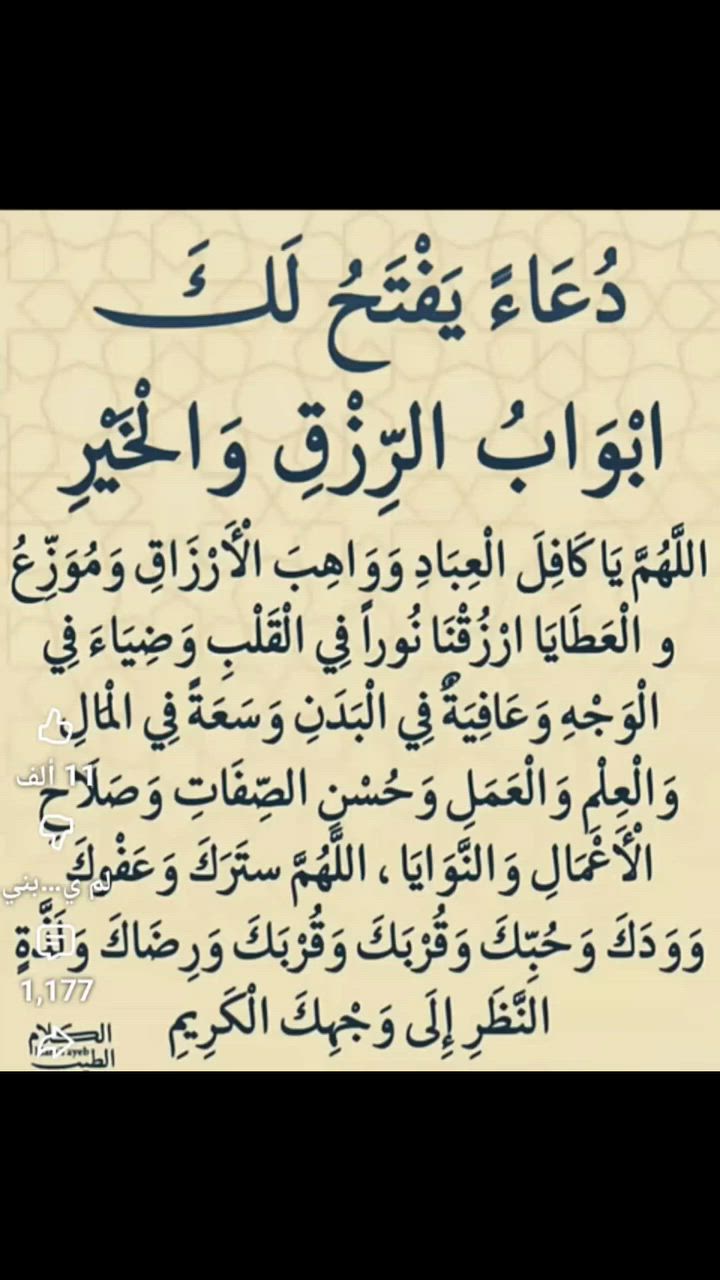 دُعَاءً يَفْتَحُ لَكَ
ابْوَابُ الرِّزْقِ وَالْخَيْرِ
اللَّهُمَّ يَا كَافِلَ الْعِبَادِ وَوَاهِبَ الْأَرْزَاقِ وَمُوَزِّعُ
و الْعَطَايَا ارْزُقْنَا نُوراً فِي الْقَلْبِ وَضِيَاءَ فِي
الْوَجْهِ وَعَافِيَةٌ فِي الْبَدَنِ وَسَعَةً فِي الْمَالِ
وَالْعِلْمِ وَالْعَمَلِ وَحُسْنِ الصِّفَاتِ وَصَلَاحِ
الْأَعْمَالِ وَالنَّوَايَا ، اللَّهُمَّ سترَكَ وَعَفْوكَ
وَوَدَكَ وَحُبِّكَ وَقُرْبَكَ وَقُرْبَكَ وَرِضَاكَ وَلَذَّةٍ
النَّظَرِ إِلَى وَجْهِكَ الْكَرِيمِ
11 ألف
لم ي...بني
1,177
الكلام
الطيب